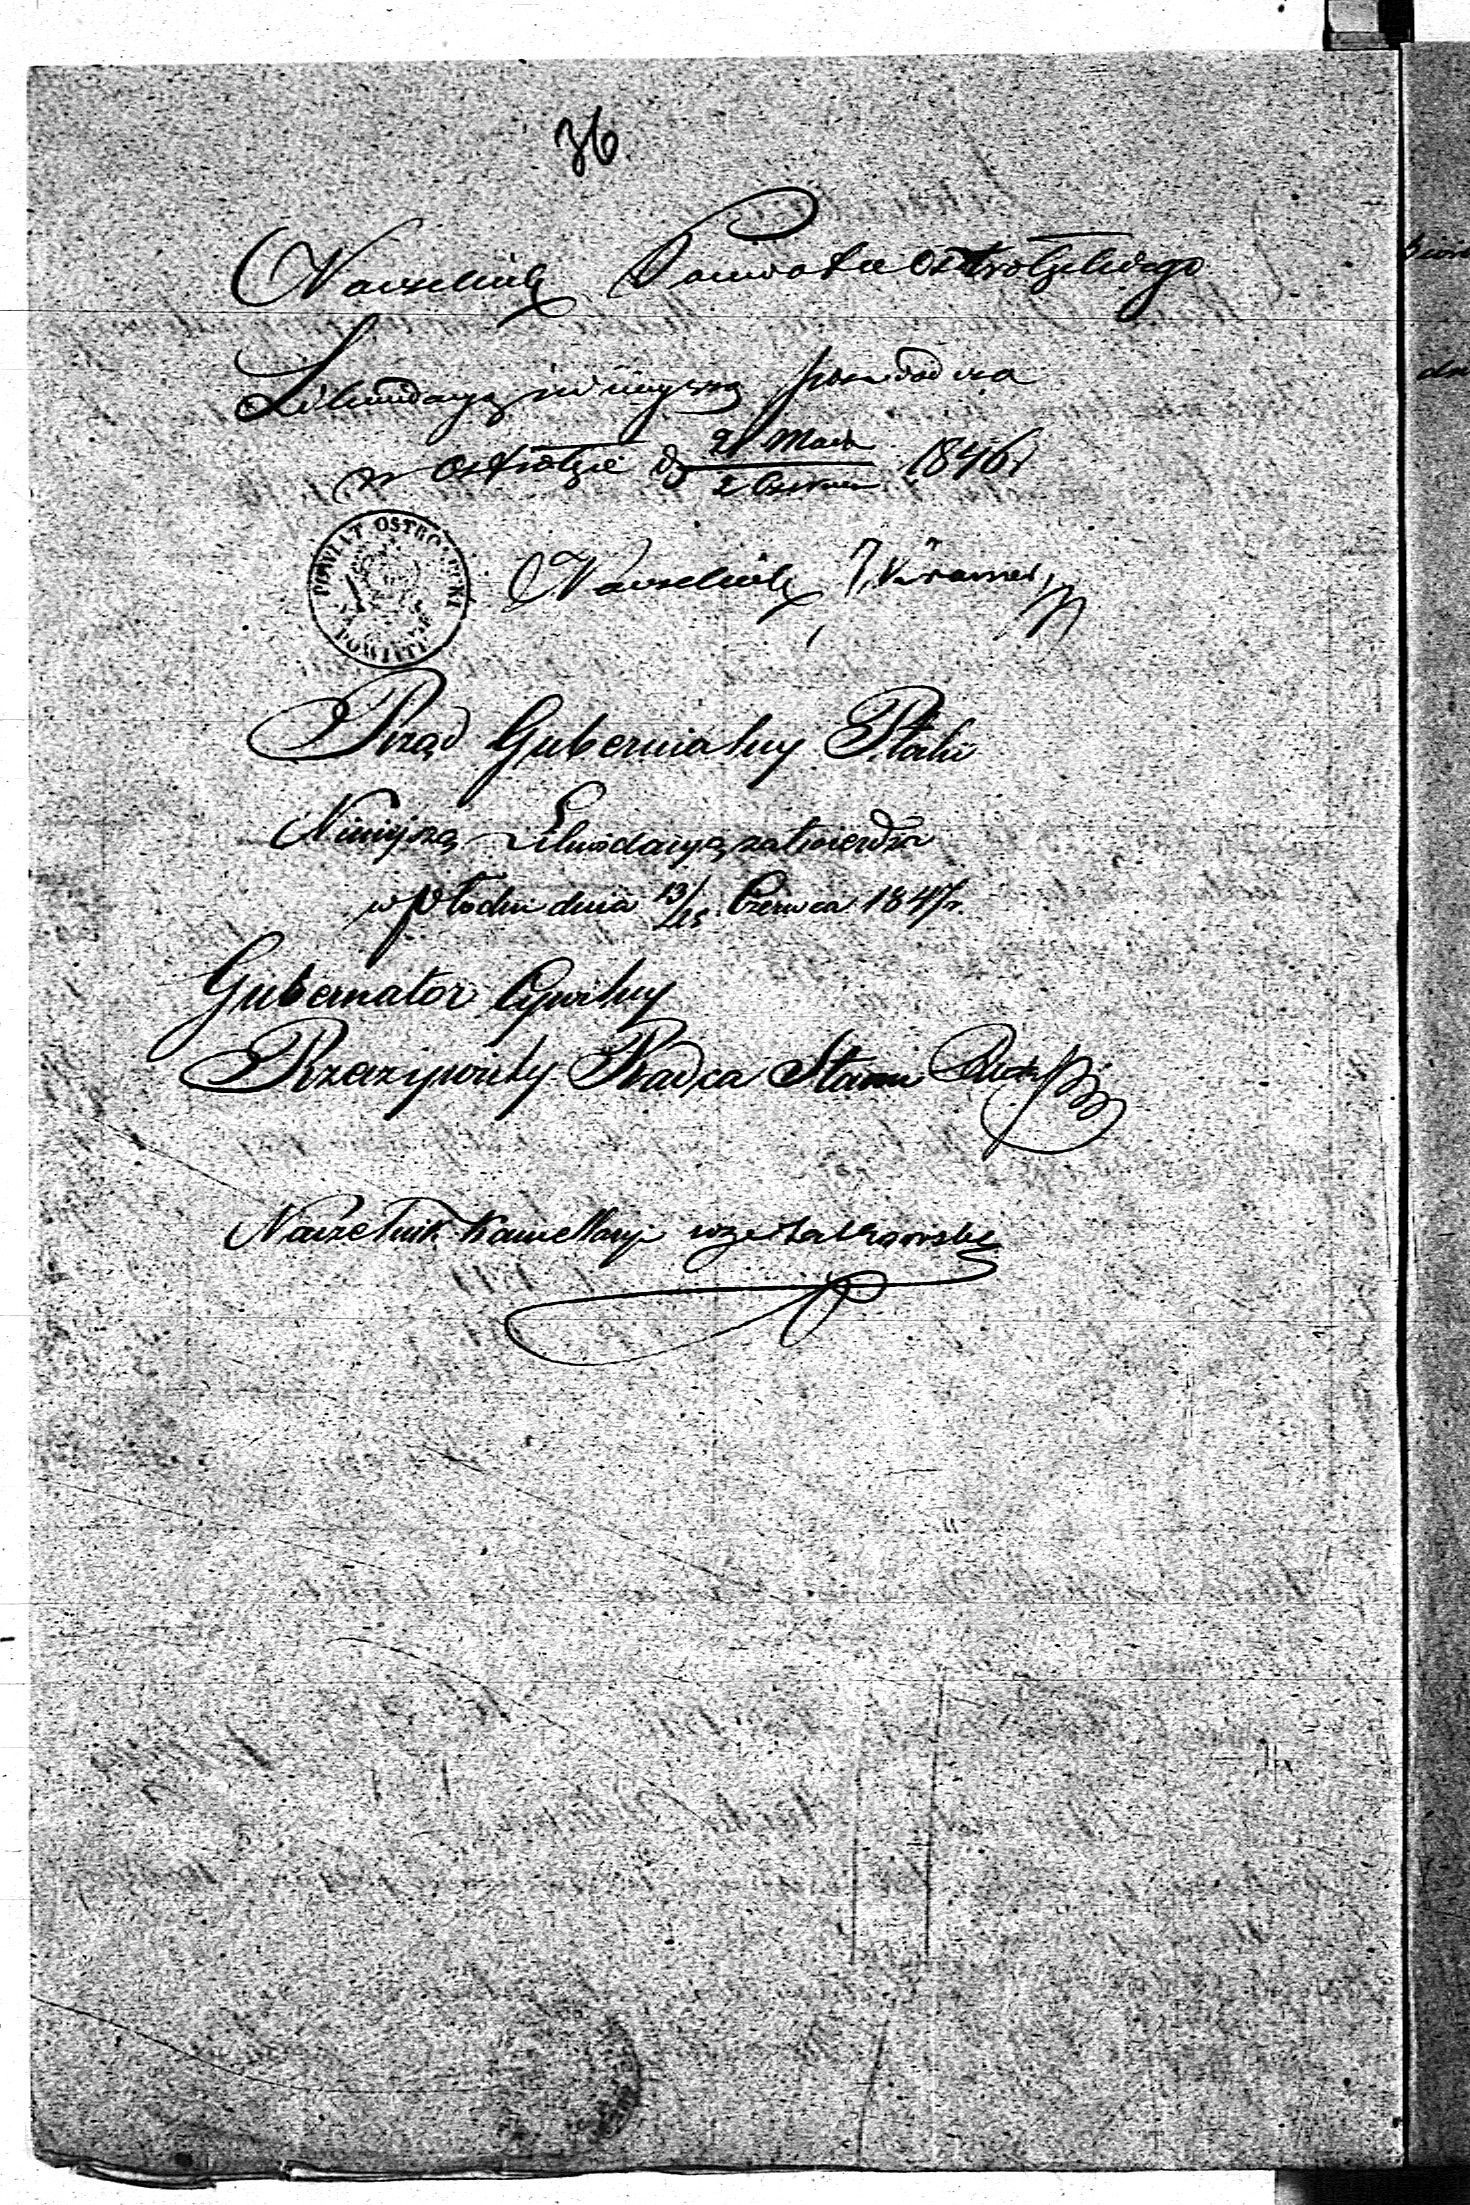 36
Naczelnik Powiatu Ostrołęckiego
Likwidacyą niniejszą poswiadcza
w Ostrołęce d 21 Maja / 2 Czerwca 1846 r
POWIAT OSTROŁĘCKI
Naczelnik
Rząd Gubernialny Płocki
Niniejszą Likwidacyą zatwierdza
w Płocku dnia 13/25 Czerwca 1847 r.
Gubernator Cywilny
Rzeczywisty Radca Stanu
Naczelnik Kancellaryi